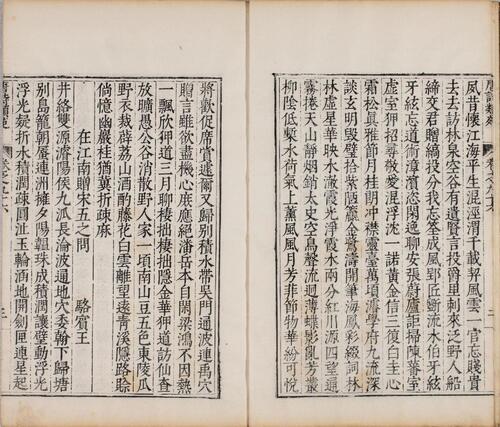 風昔懷江海平生混涇渭千載契風雲一官忘賤貴
去去訪林泉空谷有遺賢言投爵里刺來泛野人船
締交君贈縞投分我忘筌成風郢匠斲流水伯牙絃
牙絃忘道術漳濱恣閑逸聊安張蔚廬詎掃陳蕃室
虛室狎招尋敬愛混浮沈一諾黃金信三復白圭心
霜松貞雅節月桂朗冲襟靈臺萬頃濬學府九流深
談玄明毀璧拾紫陋籯金鷺濤開筆海鳳彩綴詞林
林虛星華映水澈霞光淨霞水兩分紅川源四望通
霧捲天山靜烟銷太史空鳥聲流迥薄蝶影亂芳叢
柳陰低槧水荷氣上薰風風月芳菲節物華紛可悅
將歡促席賞遽爾又歸別積水帶吳門通波連禹穴
贈言雖欲盡機心庶應絕潘岳本自閑梁鴻不因熱
一瓢欣狎道三月聊棲拙棲拙隱金華狎道訪仙查
放曠愚公谷消散野人家一頃南山豆五色東陵瓜
野衣裁薜荔山酒酌藤花白雲離望遠青溪隱路賒
倘憶幽巖桂猶冀折疎麻
在江南贈宋五之問
駱賓王
井絡雙源濬潯陽九派長淪波通地穴委輸下歸塘
別島籠朝蜃連洲擁夕陽韞珠成積潤讓璧動浮光
浮光凝折水積潤疎圓沚玉輪涵地開劍匣連星起